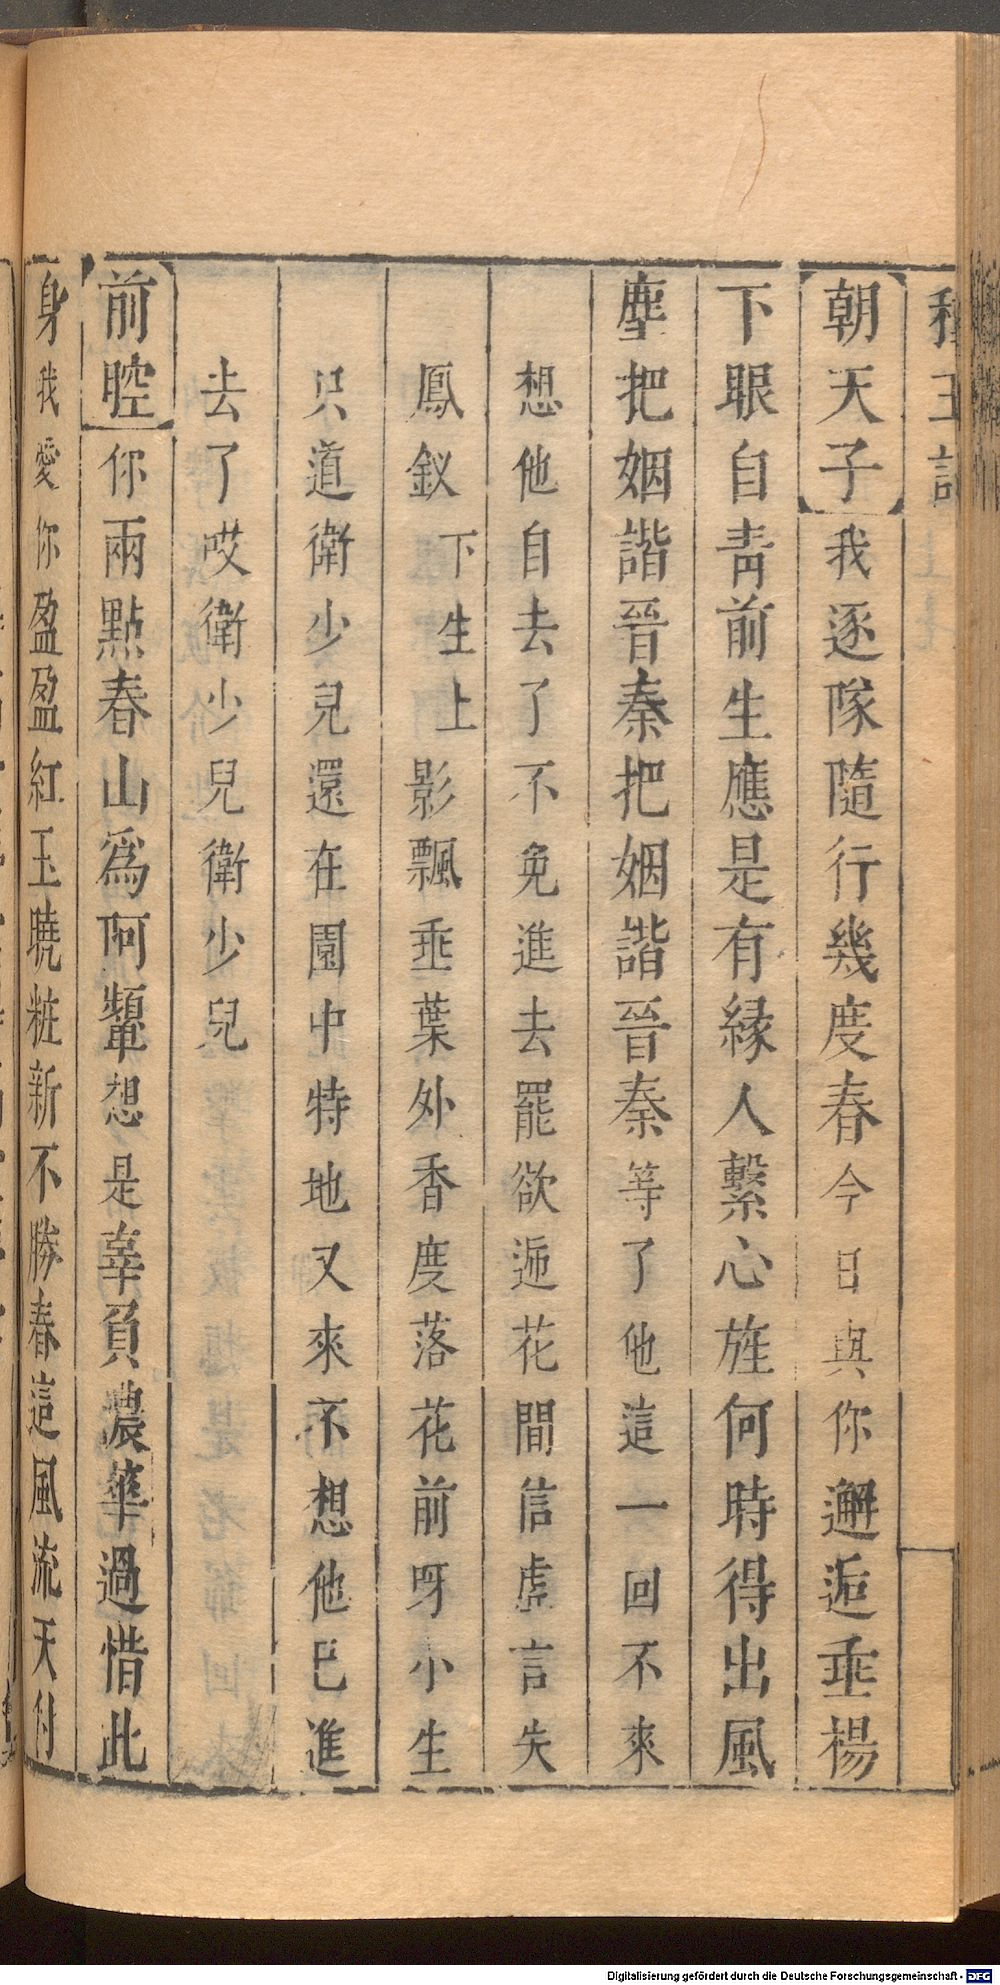 種玉記
朝天子我逐隊隨行幾度春今日與你邂逅垂楊
下眼自靑前生應是有緣人繫心旌何時得出風
塵把姻諧晉秦把姻諧晉秦等了他這一回不來
想他自去了不免進去罷欲逓花間信虛言失
鳳釵下生上影飄垂葉外香度落花前呀小生
只道衛少兒還在園中特地又來不想他已進
去了哎衛少兒衛少兒
前腔你兩點春山爲阿顰想是辜負濃華過惜此
身我愛你盈盈紅玉曉粧新不勝春這風流天付
Digitalisierung gefördert durch die Deutsche Forschungsgemeinschaft - DFG